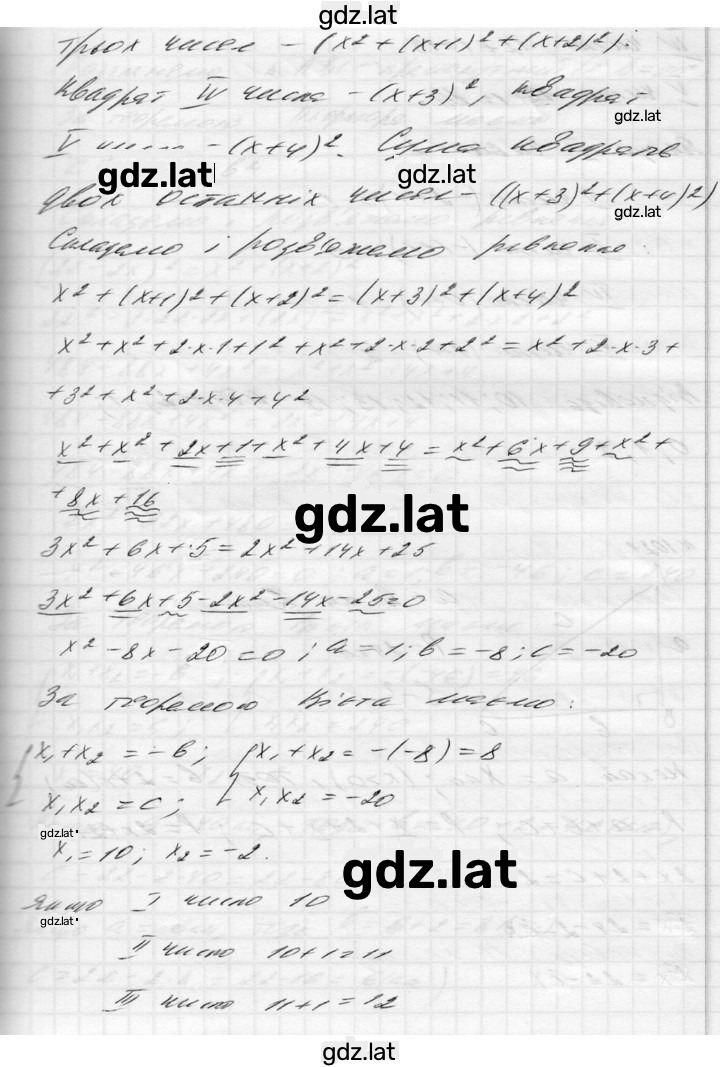 gdz.lat
трьох чисел – (x² + (x+1)² + (x+2)²).
Квадрат IV числа – (x+3)², квадрат
gdz.lat
V числа – (x+4)². Сума квадратів
gdz.lat gdz.lat
двох останніх чисел – ((x+3)² + (x+4)²)
gdz.lat
Складемо і розв'яжемо рівняння:
x² + (x+1)² + (x+2)² = (x+3)² + (x+4)²
x² + x² + 2·x·1 + 1² + x² + 2·x·2 + 2² = x² + 2·x·3 +
+ 3² + x² + 2·x·4 + 4²
x² + x² + 2x + 1 + x² + 4x + 4 = x² + 6x + 9 + x² +
+ 8x + 16
gdz.lat
3x² + 6x + 5 = 2x² + 14x + 25
3x² + 6x + 5 - 2x² - 14x - 25 = 0
x² - 8x - 20 = 0; a = 1; b = -8; c = -20
За теоремою Вієта маємо:
{x₁ + x₂ = -b; {x₁ + x₂ = -(-8) = 8
x₁x₂ = c; x₁x₂ = -20
gdz.lat
x₁ = 10; x₂ = -2.
gdz.lat
якщо I число 10
gdz.lat
II число 10+1=11
III число 11+1=12
gdz.lat